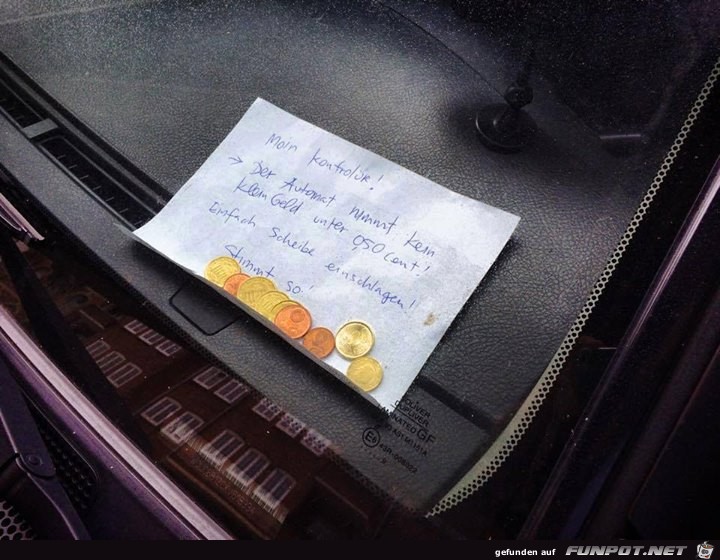 Moin kontrolör!
→ Der Automat nimmt kein
kleinGeld unter 0,50 Cent!
Einfach Scheibe einschlagen!
Stimmt so!
GF
gefunden auf FUNPOT.NET